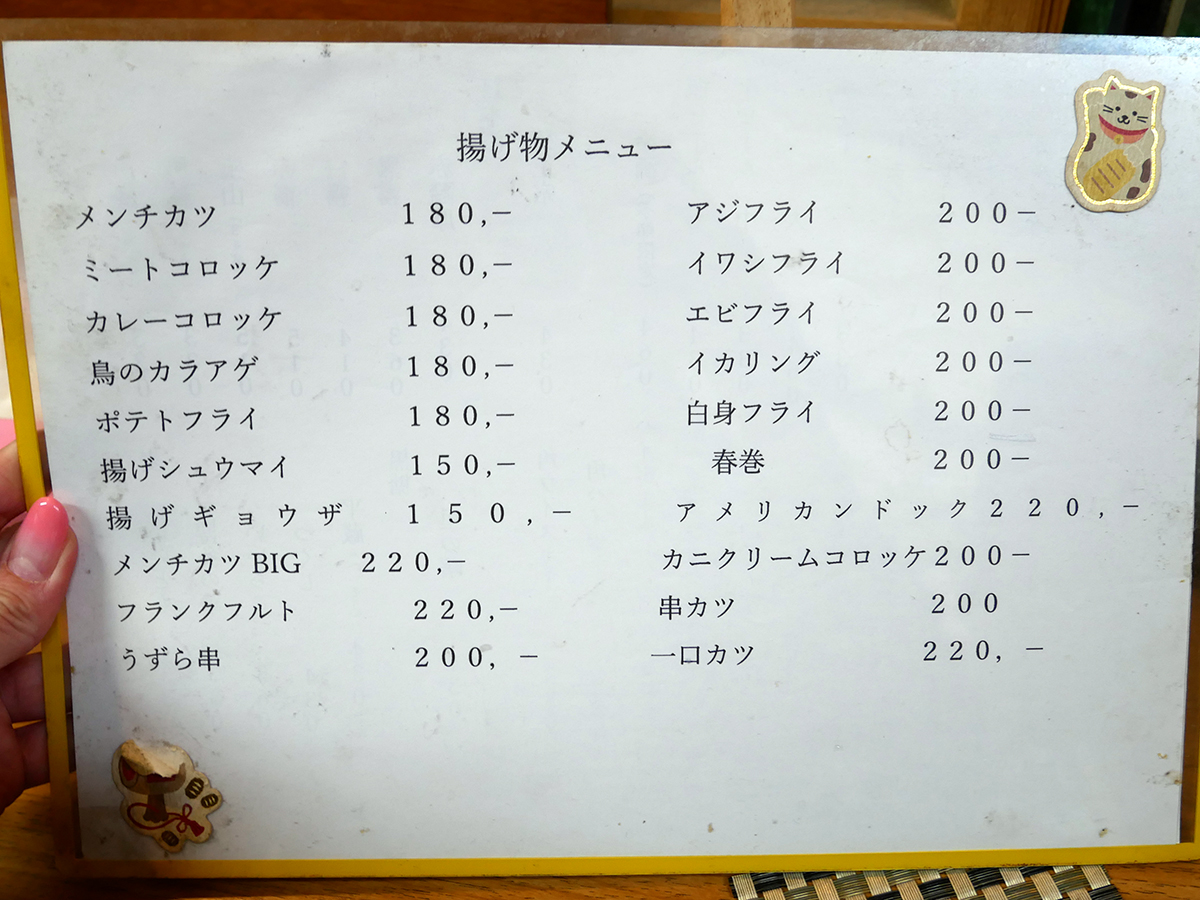 揚げ物メニュー
メンチカツ 180,−
ミートコロッケ 180,−
カレーコロッケ 180,−
鳥のカラアゲ 180,−
ポテトフライ 180,−
揚げシュウマイ 150,−
揚げギョウザ 150,−
メンチカツ BIG 220,−
フランクフルト 220,−
うずら串 200, −
アジフライ 200−
イワシフライ 200−
エビフライ 200−
イカリング 200−
白身フライ 200−
春巻 200−
アメリカンドック 220,−
カニクリームコロッケ 200−
串カツ 200
一口カツ 220, −